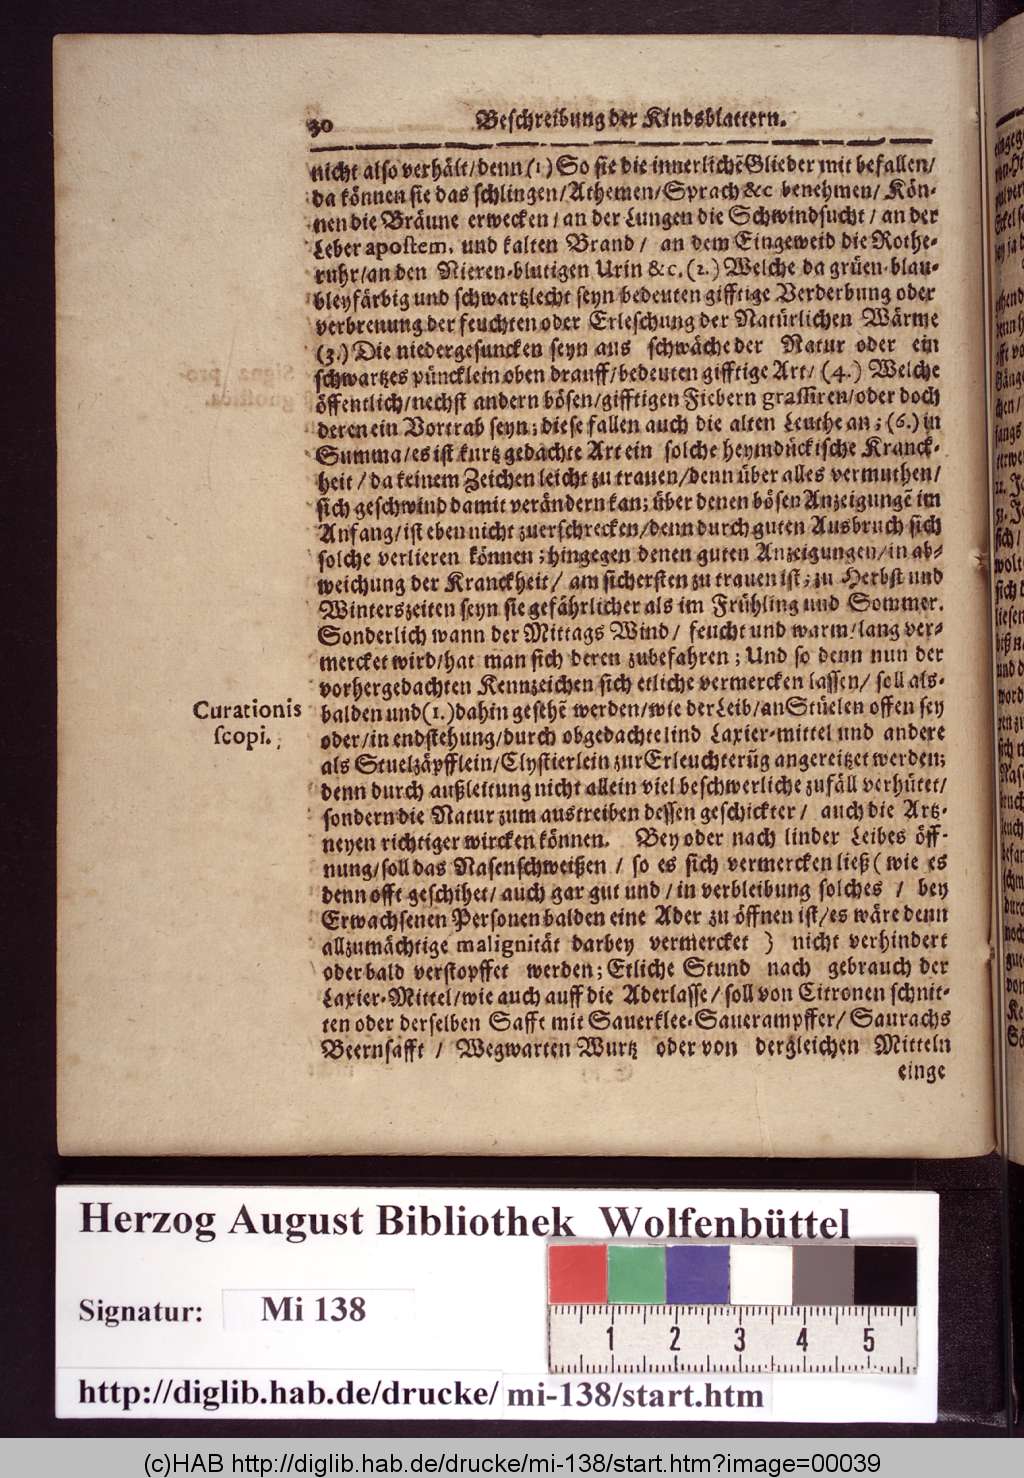 30 Beschreibung der Kindsblattern.
nicht also verhält/denn (1) So sie die innerlichẽ Glieder mit befallen/
da können sie das schlingen/Athemen/Sprach &c benehmen/ Kön-
nen die Bräune erwecken/ an der Lungen die Schwindsucht / an der
Leber apostem. und kalten Brand / an dem Eingeweid die Rothe-
ruhr/an den Nieren-blutigen Urin &c. (2.) Welche da grüen-blau-
bleyfärbig und schwartzlecht seyn bedeuten gifftige Verderbung oder
verbrenung der feuchten oder Erleschung der Natürlichen Wärme
(3.) Die niedergesuncken seyn aus schwäche der Natur oder ein
schwartzes püncklein oben drauff/bedeuten gifftige Art/ (4.) Welche
öffentlich/nechst andern bösen/gifftigen Fiebern grassiren/oder doch
deren ein Vortrab seyn; diese fallen auch die alten Leuthe an; (6.) in
Summa/es ist kurtz gedachte Art ein solche heymdückische Kranck-
heit / da keinem Zeichen leicht zu trauen/denn über alles vermuthen/
sich geschwind damit verändern kan; über denen bösen Anzeigungẽ im
Anfang/ist eben nicht zuerschrecken/denn durch guten Ausbruch sich
solche verlieren können ; hingegen denen guten Anzeigungen/in ab-
weichung der Kranckheit/ am sichersten zu trauen ist; zu Herbst und
Winterszeiten seyn sie gefährlicher als im Frühling und Sommer.
Sonderlich wann der Mittags Wind / feucht und warm/lang ver-
mercket wird/hat man sich deren zubefahren ; Und so denn nun der
vorhergedachten Kennzeichen sich etliche vermercken lassen/ soll als-
Curationis scopi.
balden und (1.) dahin gesehẽ werden/wie der Leib/an Stüelen offen sey
oder/in endstehung/durch obgedachte lind Laxier-mittel und andere
als Stuelzäpfflein/Clystierlein zur Erleuchterũg angereitzet werden;
denn durch außleitung nicht allein viel beschwerliche zufäll verhütet/
sondern die Natur zum austreiben dessen geschickter / auch die Artz-
neyen richtiger wircken können. Bey oder nach linder Leibes öff-
nung/soll das Nasenschweißen / so es sich vermercken ließ ( wie es
denn offt geschihet/ auch gar gut und / in verbleibung solches / bey
Erwachsenen Personen balden eine Ader zu öffnen ist/es wäre denn
allzumächtige malignität darbey vermercket ) nicht verhindert
oder bald verstopffet werden; Etliche Stund nach gebrauch der
Laxier-Mittel/wie auch auff die Aderlasse / soll von Citronen schnit-
ten oder derselben Safft mit Sauerklee-Sauerampffer/ Saurachs
Beernsafft / Wegwarten Wurtz oder von dergleichen Mitteln
einge
Herzog August Bibliothek Wolfenbüttel
Signatur: Mi 138
1 2 3 4 5
http://diglib.hab.de/drucke/mi-138/start.htm
(c)HAB http://diglib.hab.de/drucke/mi-138/start.htm?image=00039